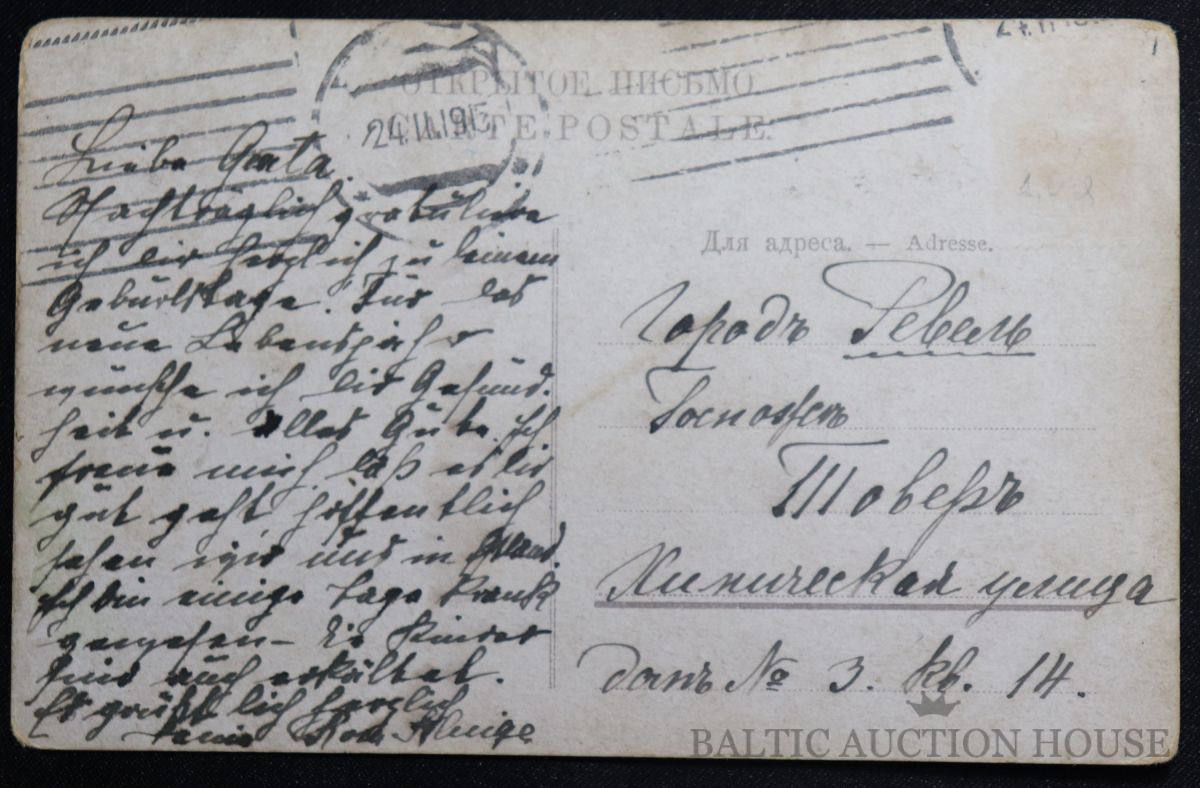 ОТКРЫТОЕ ПИСЬМО.
CARTE POSTALE.
24.II.1915
Liebe
Nachträglich gratuliere
ich dir herzlich zu deinem
Geburtstage. Für das
neue Lebensjahr
wünsche ich dir Gesund-
heit u. alles Gute. Ich
freue mich, daß es dir
gut geht hoffentlich
sehen wir uns in
Ich bin einige Tage krank
gewesen – die Kinder
sind auch erkältet.
Es grüßt dich herzlich
Для адреса. — Adresse.
Городъ Ревель
Госпожѣ
Товеръ
Химическая улица
домъ № 3. кв. 14.
BALTIC AUCTION HOUSE